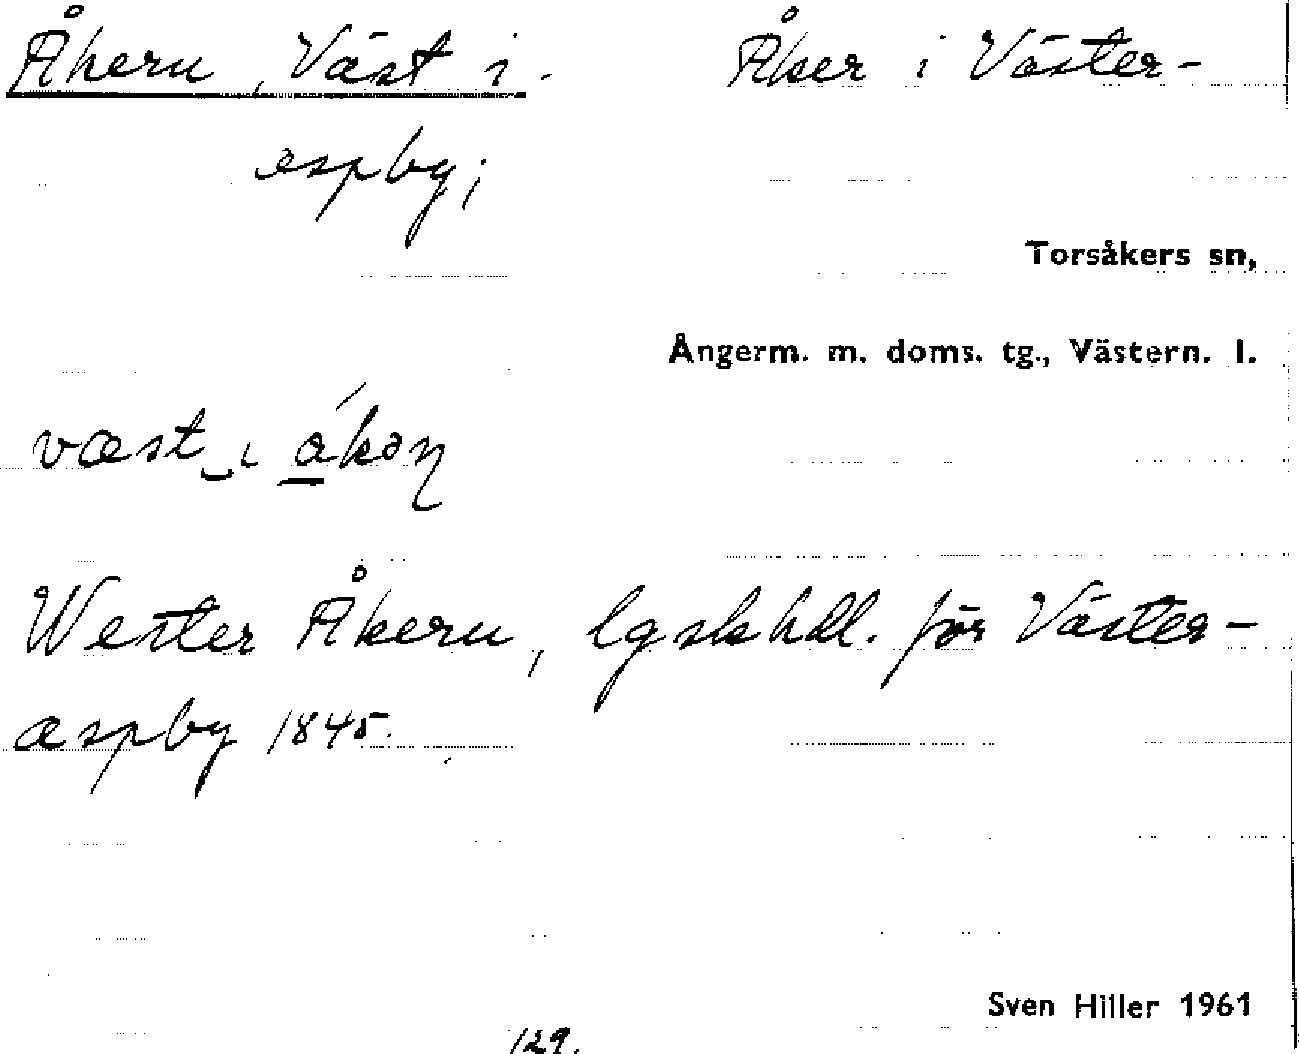 Åkern, Väst i. Åker i Väster-
aspby;
Torsåkers sn,
Ångerm. m. doms. tg., Västern. l.
væst ı ákəɳ
Wester Åkern, lgskhdl. för Väster-
aspby 1845.
Sven Hiller 1961
129.